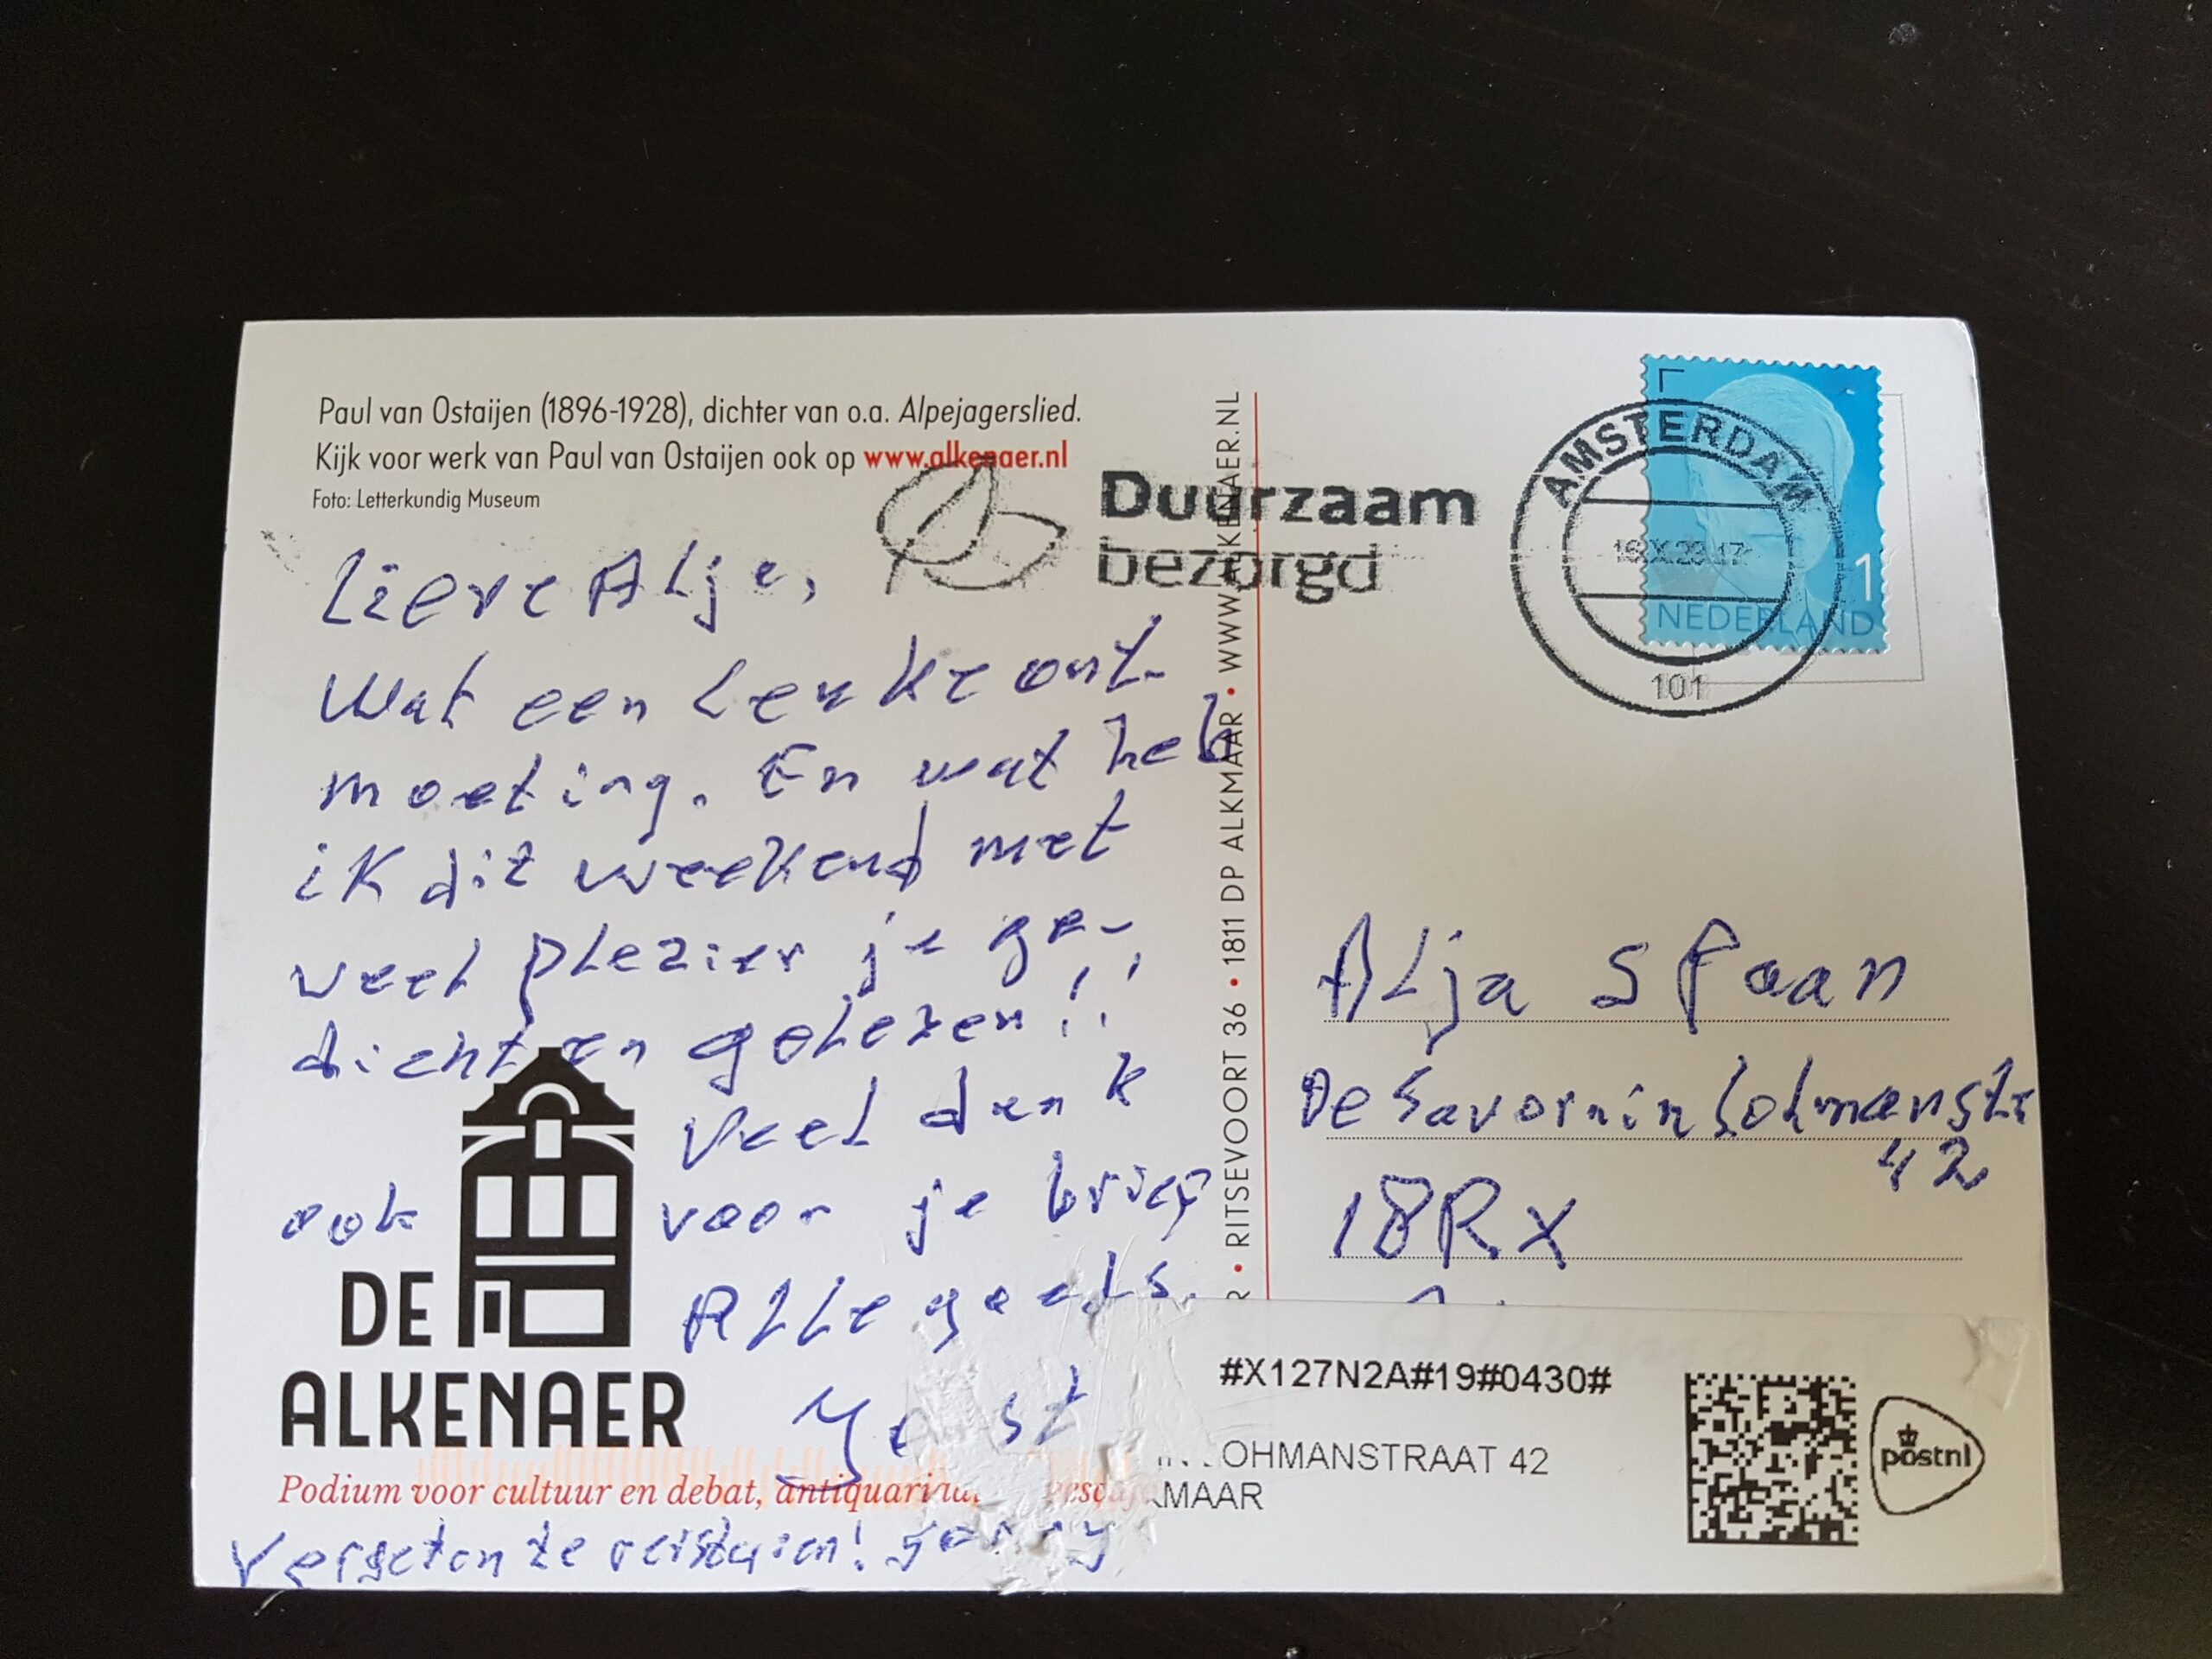 Paul van Ostaijen (1896-1928), dichter van o.a. Alpejagerslied.
Kijk voor werk van Paul van Ostaijen ook op www.alkenaer.nl
Foto: Letterkundig Museum
Duurzaam
bezorgd
AMSTERDAM
101
1
NEDERLAND
Lieve Alje,
Wat een leuke ont-
moeting. En wat heb
ik dit weekend met
veel plezier je ge-
dichten gelezen!!
Veel dank
ook voor je brief
Alle goeds.
Joost
DE
ALKENAER
Podium voor cultuur en debat, antiquariaat
Vergeten te versturen! sorry
RITSEVOORT 36 • 1811 DP ALKMAAR • WWW.ALKENAER.NL
Alja Spaan
De Savornin Lohmanstr
42
18RX
#X127N2A#19#0430#
OHMANSTRAAT 42
KMAAR
postnl